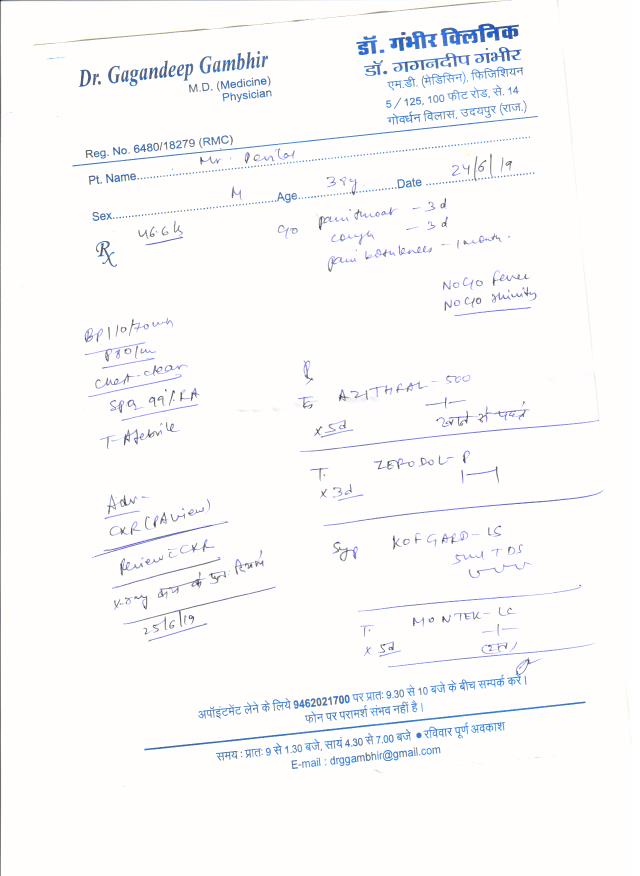 Dr. Gagandeep Gambhir
M.D. (Medicine)
Physician
डॉ. गंभीर क्लिनिक
डॉ. गगनदीप गंभीर
एम.डी. (मेडिसिन), फिजिशियन
5/125, 100 फीट रोड, से. 14
गोवर्धन विलास, उदयपुर (राज.)
Reg. No. 6480/18279 (RMC)
Pt. Name Mr.
Sex M Age 38y Date 24/6/19
Rx 46.6 k
c/o pain throat - 3d
cough - 3d
pain - 1 month.
No c/o fever
No c/o
BP 110/70
P80/m
Chest-clear
SpO2 99% RA
T-Afebrile
AZITHRAL-500
x 5d
खाने से पहले
T. ZERODOL-P
x 3d
Adv-
CXR (PA view)
Review c CXR
X-ray
25/6/19
Syp KOFGARD-LS
5ml TDS
T. MONTEK-LC
x 5d
(रात)
अपॉइंटमेंट लेने के लिये 9462021700 पर प्रातः 9.30 से 10 बजे के बीच सम्पर्क करें।
फोन पर परामर्श संभव नहीं है।
समय : प्रातः 9 से 1.30 बजे, सायं 4.30 से 7.00 बजे ● रविवार पूर्ण अवकाश
E-mail : drggambhir@gmail.com